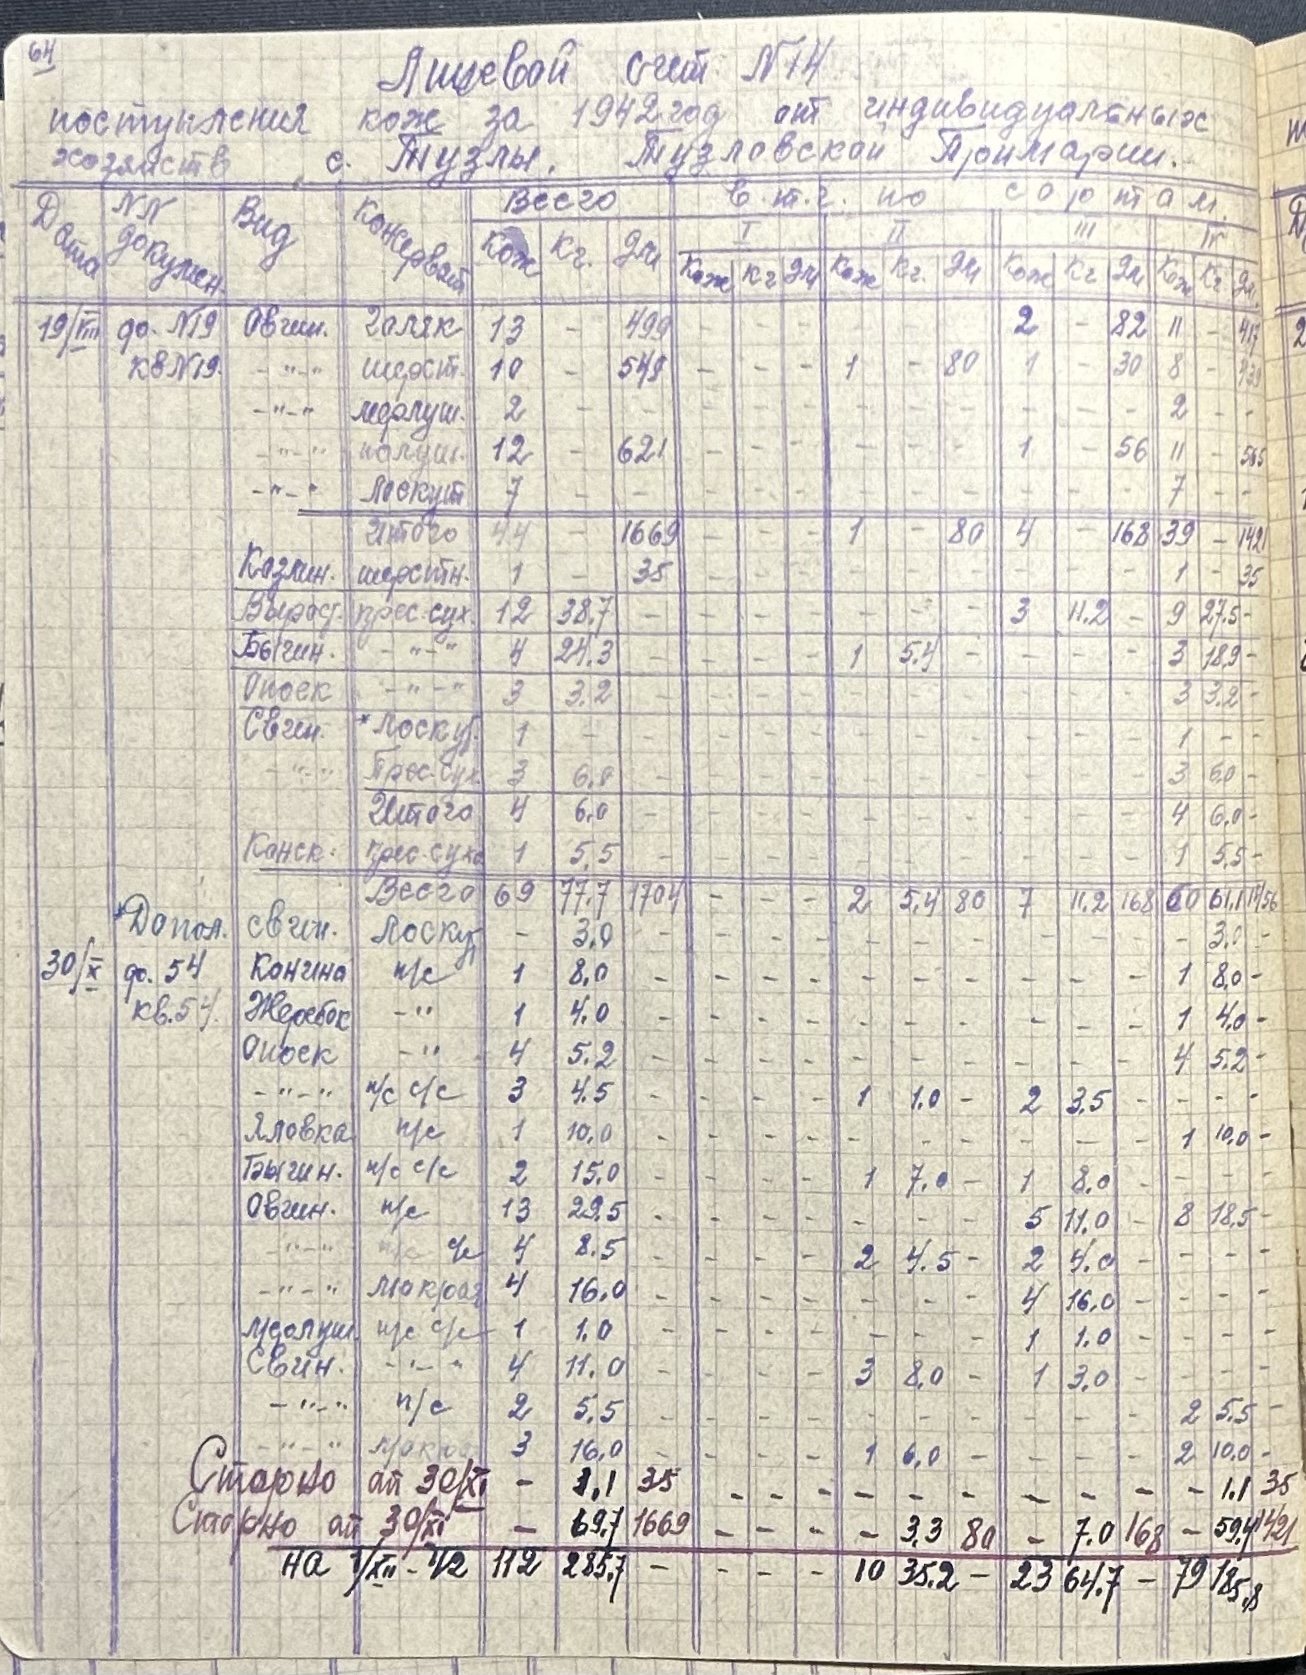 64
Лицевой счет N14
поступления кож за 1942 год от индивидуальных
хозяйств с. Тузлы, Тузловской Примарии.
Дата NN докумен. Вид Консервация Всего в т.ч. по сортам.
I II III IV
Кож Кг. Дм Кож Кг Дм Кож Кг. Дм Кож Кг Дм Кож Кг Дм.
19/VIII до. N19 Овчин. Голяк 13 - 499 2 - 82 11 - 417
кв N19. -"-"- шерст. 10 - 549 - - - 1 - 80 1 - 30 8 - 439
-"-"- мерлуш. 2 - - - - - - - - - - - 2 - -
-"-"- полуш. 12 - 621 - - - - - - 1 - 56 11 - 565
-"-"- Лоскут 7 - - - - - - - - - - - 7 - -
Итого 44 - 1669 - - - 1 - 80 4 - 168 39 - 1421
Козлин. шерстн. 1 - 35 - - - - - - - - - 1 - 35
Вырост. прес. сух. 12 38.7 - - - - - - - 3 11.2 - 9 27.5 -
Бычин. -"-"- 4 24.3 - - - - 1 5.4 - - - - 3 18.9 -
Опоек -"-"- 3 3.2 - - - - - - - - - - 3 3.2 -
Свин. *Лоскут. 1 - - - - - - - - - - - 1 - -
-"-"- Прес. сух. 3 6.0 - - - - - - - - - - 3 6.0 -
Итого 4 6.0 - - - - - - - - - - 4 6.0 -
Конск. прес. сухо 1 5.5 - - - - - - - - - - 1 5.5 -
Всего 69 77.7 1704 - - - 2 5.4 80 7 11.2 168 60 61.1 1456
*Допол. свин. Лоскут - 3.0 - - - - - - - - - - - 3.0 -
30/X до. 54 Конина п/с 1 8.0 - - - - - - - - - - 1 8.0 -
кв. 54. Жеребок -" 1 4.0 - - - - - - - - - - 1 4.0 -
Опоек -" 4 5.2 - - - - - - - - - - 4 5.2 -
-"-"- п/с с/с 3 4.5 - - - - 1 1.0 - 2 3.5 - - -
Яловка п/с 1 10.0 - - - - - - - - - - 1 10.0 -
Бычин. п/с с/с 2 15.0 - - - - 1 7.0 - 1 8.0 - - -
Овчин. п/с 13 29.5 - - - - - - - 5 11.0 - 8 18.5 -
-"-"- п/с с/с 4 8.5 - - - - 2 4.5 - 2 4.0 - - -
-"-"- Мокрая 4 16.0 - - - - - - - 4 16.0 - - -
Мерлуш. п/с с/с 1 1.0 - - - - - - - 1 1.0 - - -
Свин. -"-" 4 11.0 - - - - 3 8.0 - 1 3.0 - - -
-"-"- п/с 2 5.5 - - - - - - - - - - 2 5.5 -
-"-"- Мокрая 3 16.0 - - - - 1 6.0 - - - - 2 10.0 -
Сторно от 30/XI - 1.1 35 - - - - - - - - - - 1.1 35
Сторно от 30/XI - 69.7 1669 - - - - 3.3 80 - 7.0 168 - 59.4 1421
на 1/XII-42 112 285.7 - - - - 10 35.2 - 23 64.7 - 79 185.8